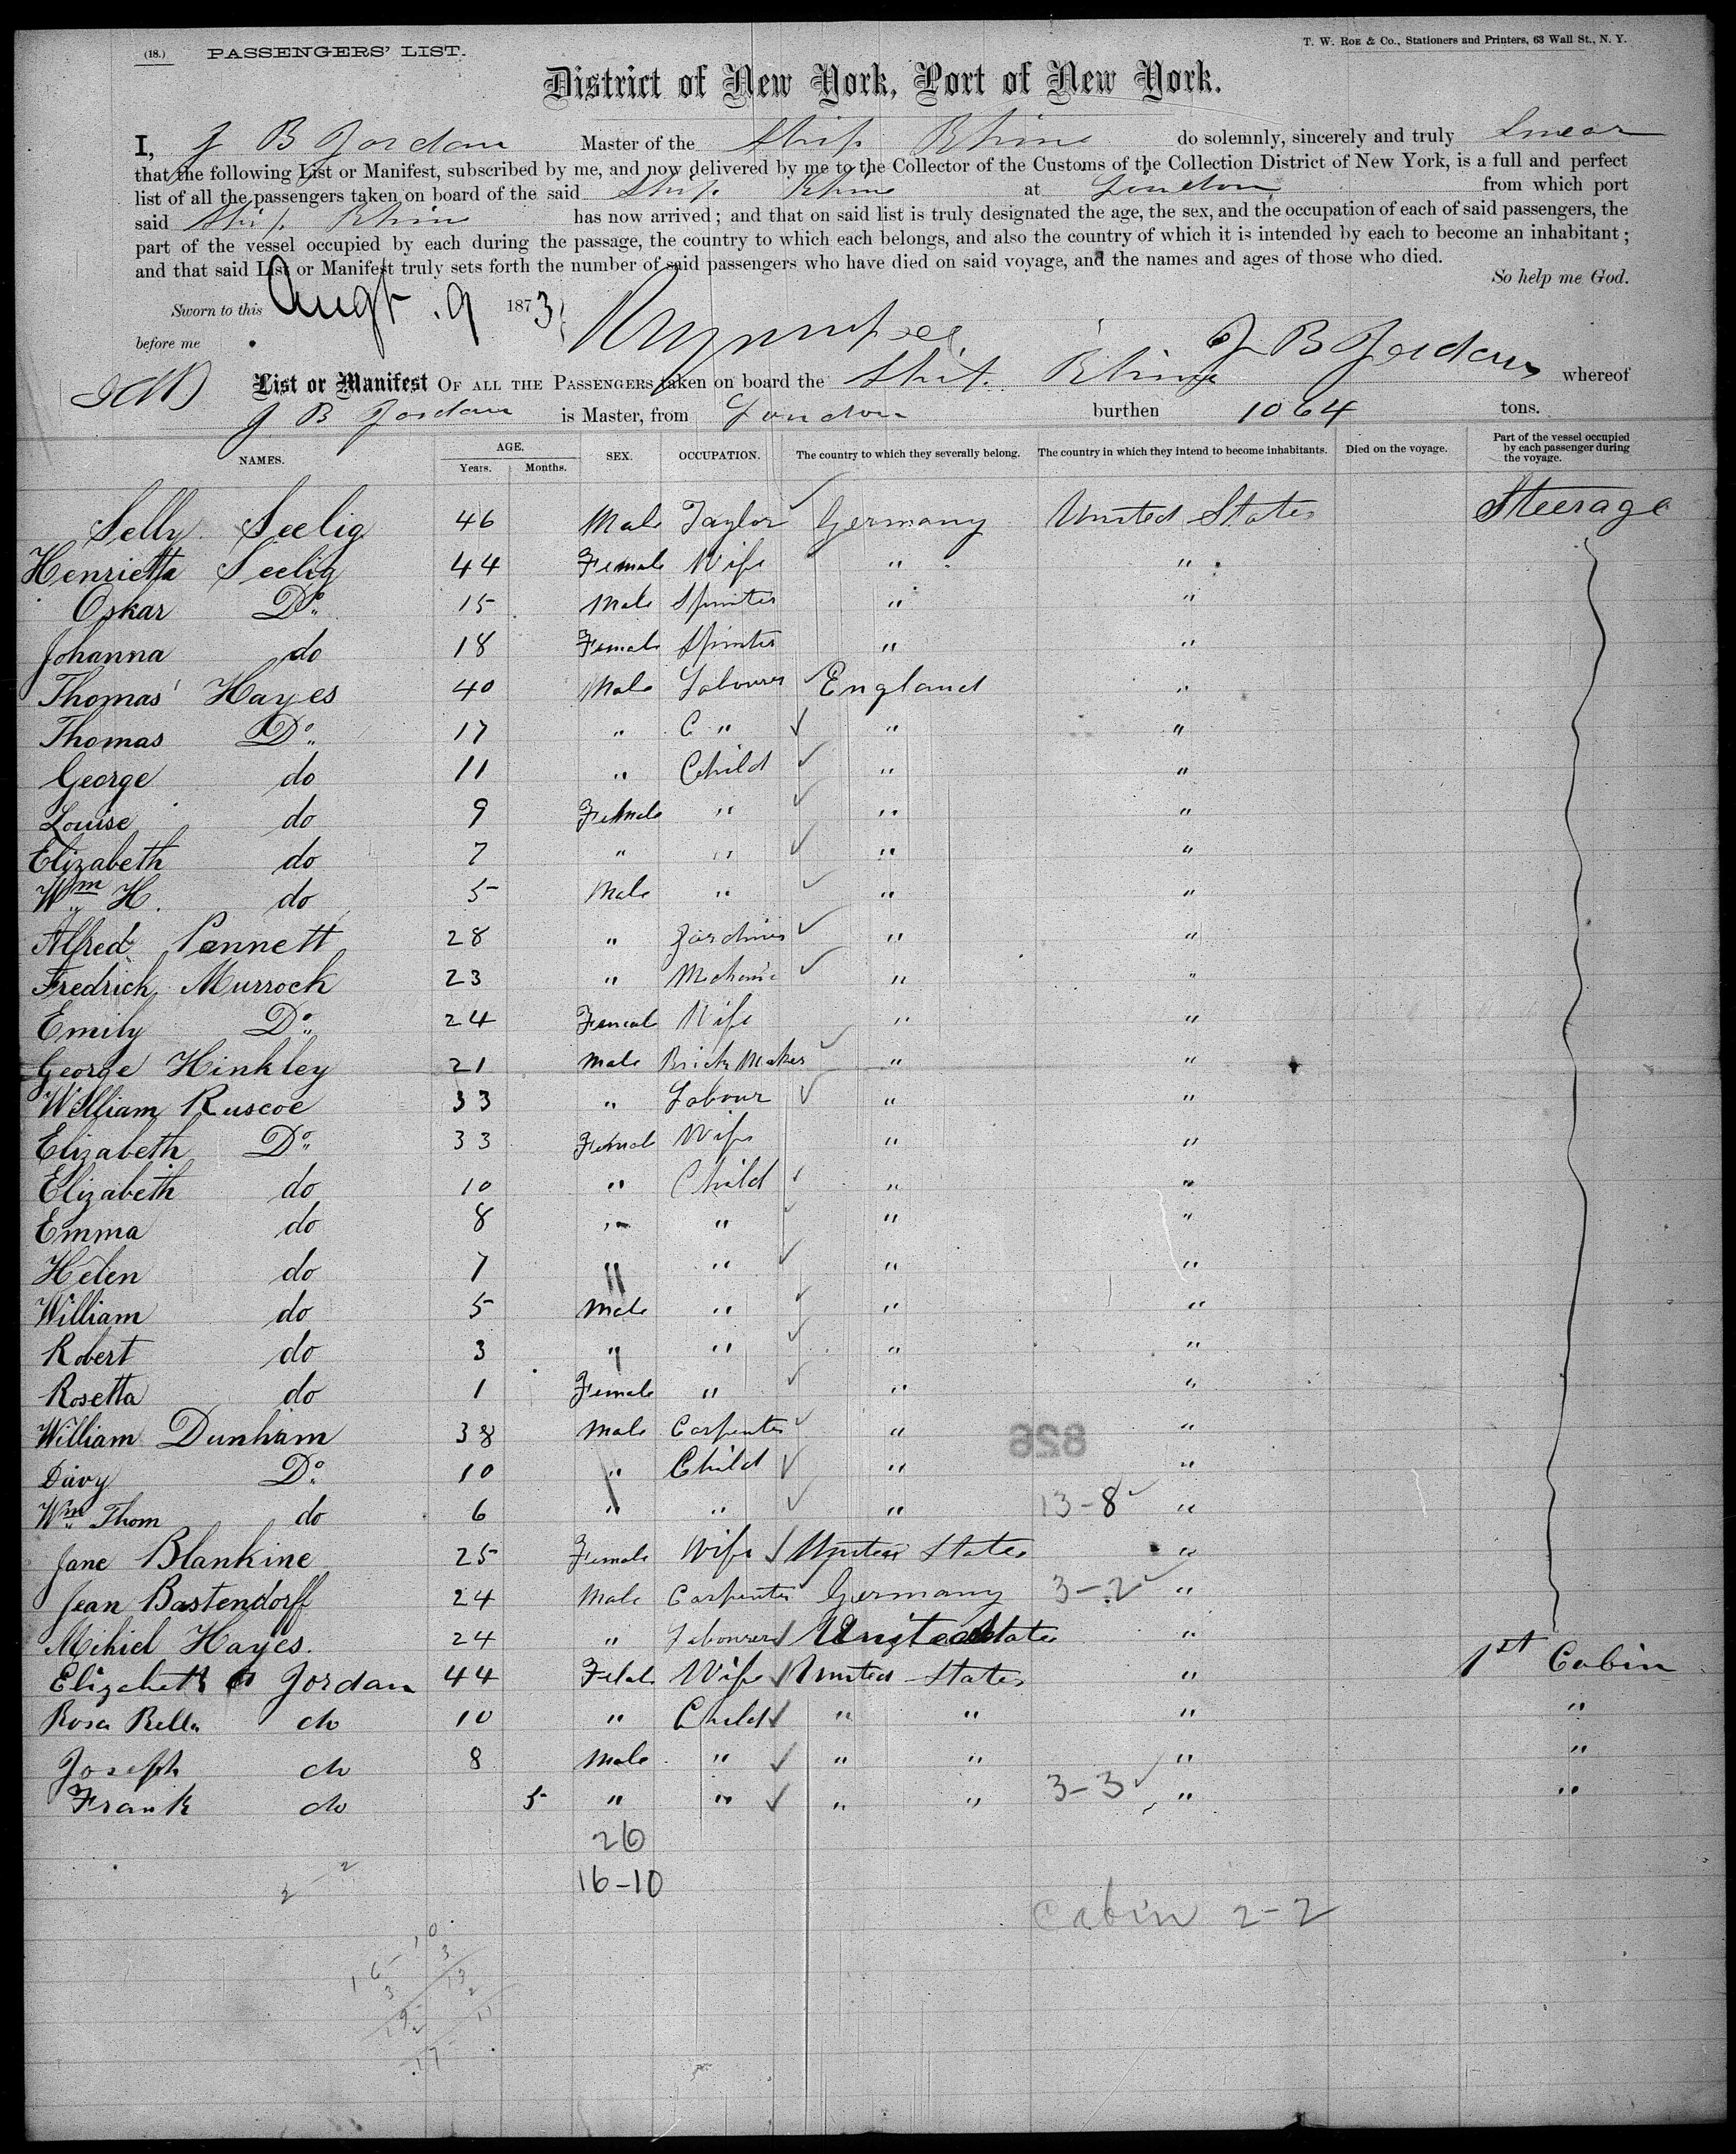 (18.) PASSENGERS' LIST.
T. W. Roe & Co., Stationers and Printers, 63 Wall St., N. Y.
District of New York, Port of New York.
I, J B Jordan Master of the Ship Rhine do solemnly, sincerely and truly Swear
that the following List or Manifest, subscribed by me, and now delivered by me to the Collector of the Customs of the Collection District of New York, is a full and perfect
list of all the passengers taken on board of the said Ship Rhine at London from which port
said Ship Rhine has now arrived; and that on said list is truly designated the age, the sex, and the occupation of each of said passengers, the
part of the vessel occupied by each during the passage, the country to which each belongs, and also the country of which it is intended by each to become an inhabitant;
and that said List or Manifest truly sets forth the number of said passengers who have died on said voyage, and the names and ages of those who died.
So help me God.
Sworn to this Augt. 9 1873
before me
J B Jordan
List or Manifest OF ALL THE PASSENGERS taken on board the Ship Rhine whereof
J B Jordan is Master, from London burthen 1064 tons.
NAMES. AGE. Years. Months. SEX. OCCUPATION. The country to which they severally belong. The country in which they intend to become inhabitants. Died on the voyage. Part of the vessel occupied by each passenger during the voyage.
Selly Seelig 46 Male Taylor Germany United States Steerage
Henrietta Seelig 44 Female Wife " "
Oskar Do 15 Male Spinster " "
Johanna do 18 Female Spinster " "
Thomas Hayes 40 Male Labourer England "
Thomas Do 17 " C " " "
George do 11 " Child " "
Louise do 9 Female " " "
Elizabeth do 7 " " " "
Wm H. do 5 Male " " "
Alfred Pannett 28 " Gardiner " "
Fredrick Murrock 23 " Mechanic " "
Emily Do 24 Female Wife " "
George Hinkley 21 Male Brick Maker " "
William Ruscoe 33 " Labour " "
Elizabeth Do 33 Female Wife " "
Elizabeth do 10 " Child " "
Emma do 8 " " " "
Helen do 7 " " " "
William do 5 Male " " "
Robert do 3 " " " "
Rosetta do 1 Female " " "
William Dunham 38 Male Carpenter " "
826
Davy Do 10 " Child " "
Wm Thom do 6 " " " 13-8 "
Jane Blankine 25 Female Wife United States "
Jean Bastendorff 24 Male Carpenter Germany 3-2 "
Mihiel Hayes. 24 " Labourer United States "
Elizabeth Jordan 44 Female Wife United States " 1st Cabin
Rosa Bella do 10 " Child " " " "
Joseph do 8 Male " " " " "
Frank do 5 " " " " 3-3 " "
26
16-10
Cabin 2-2